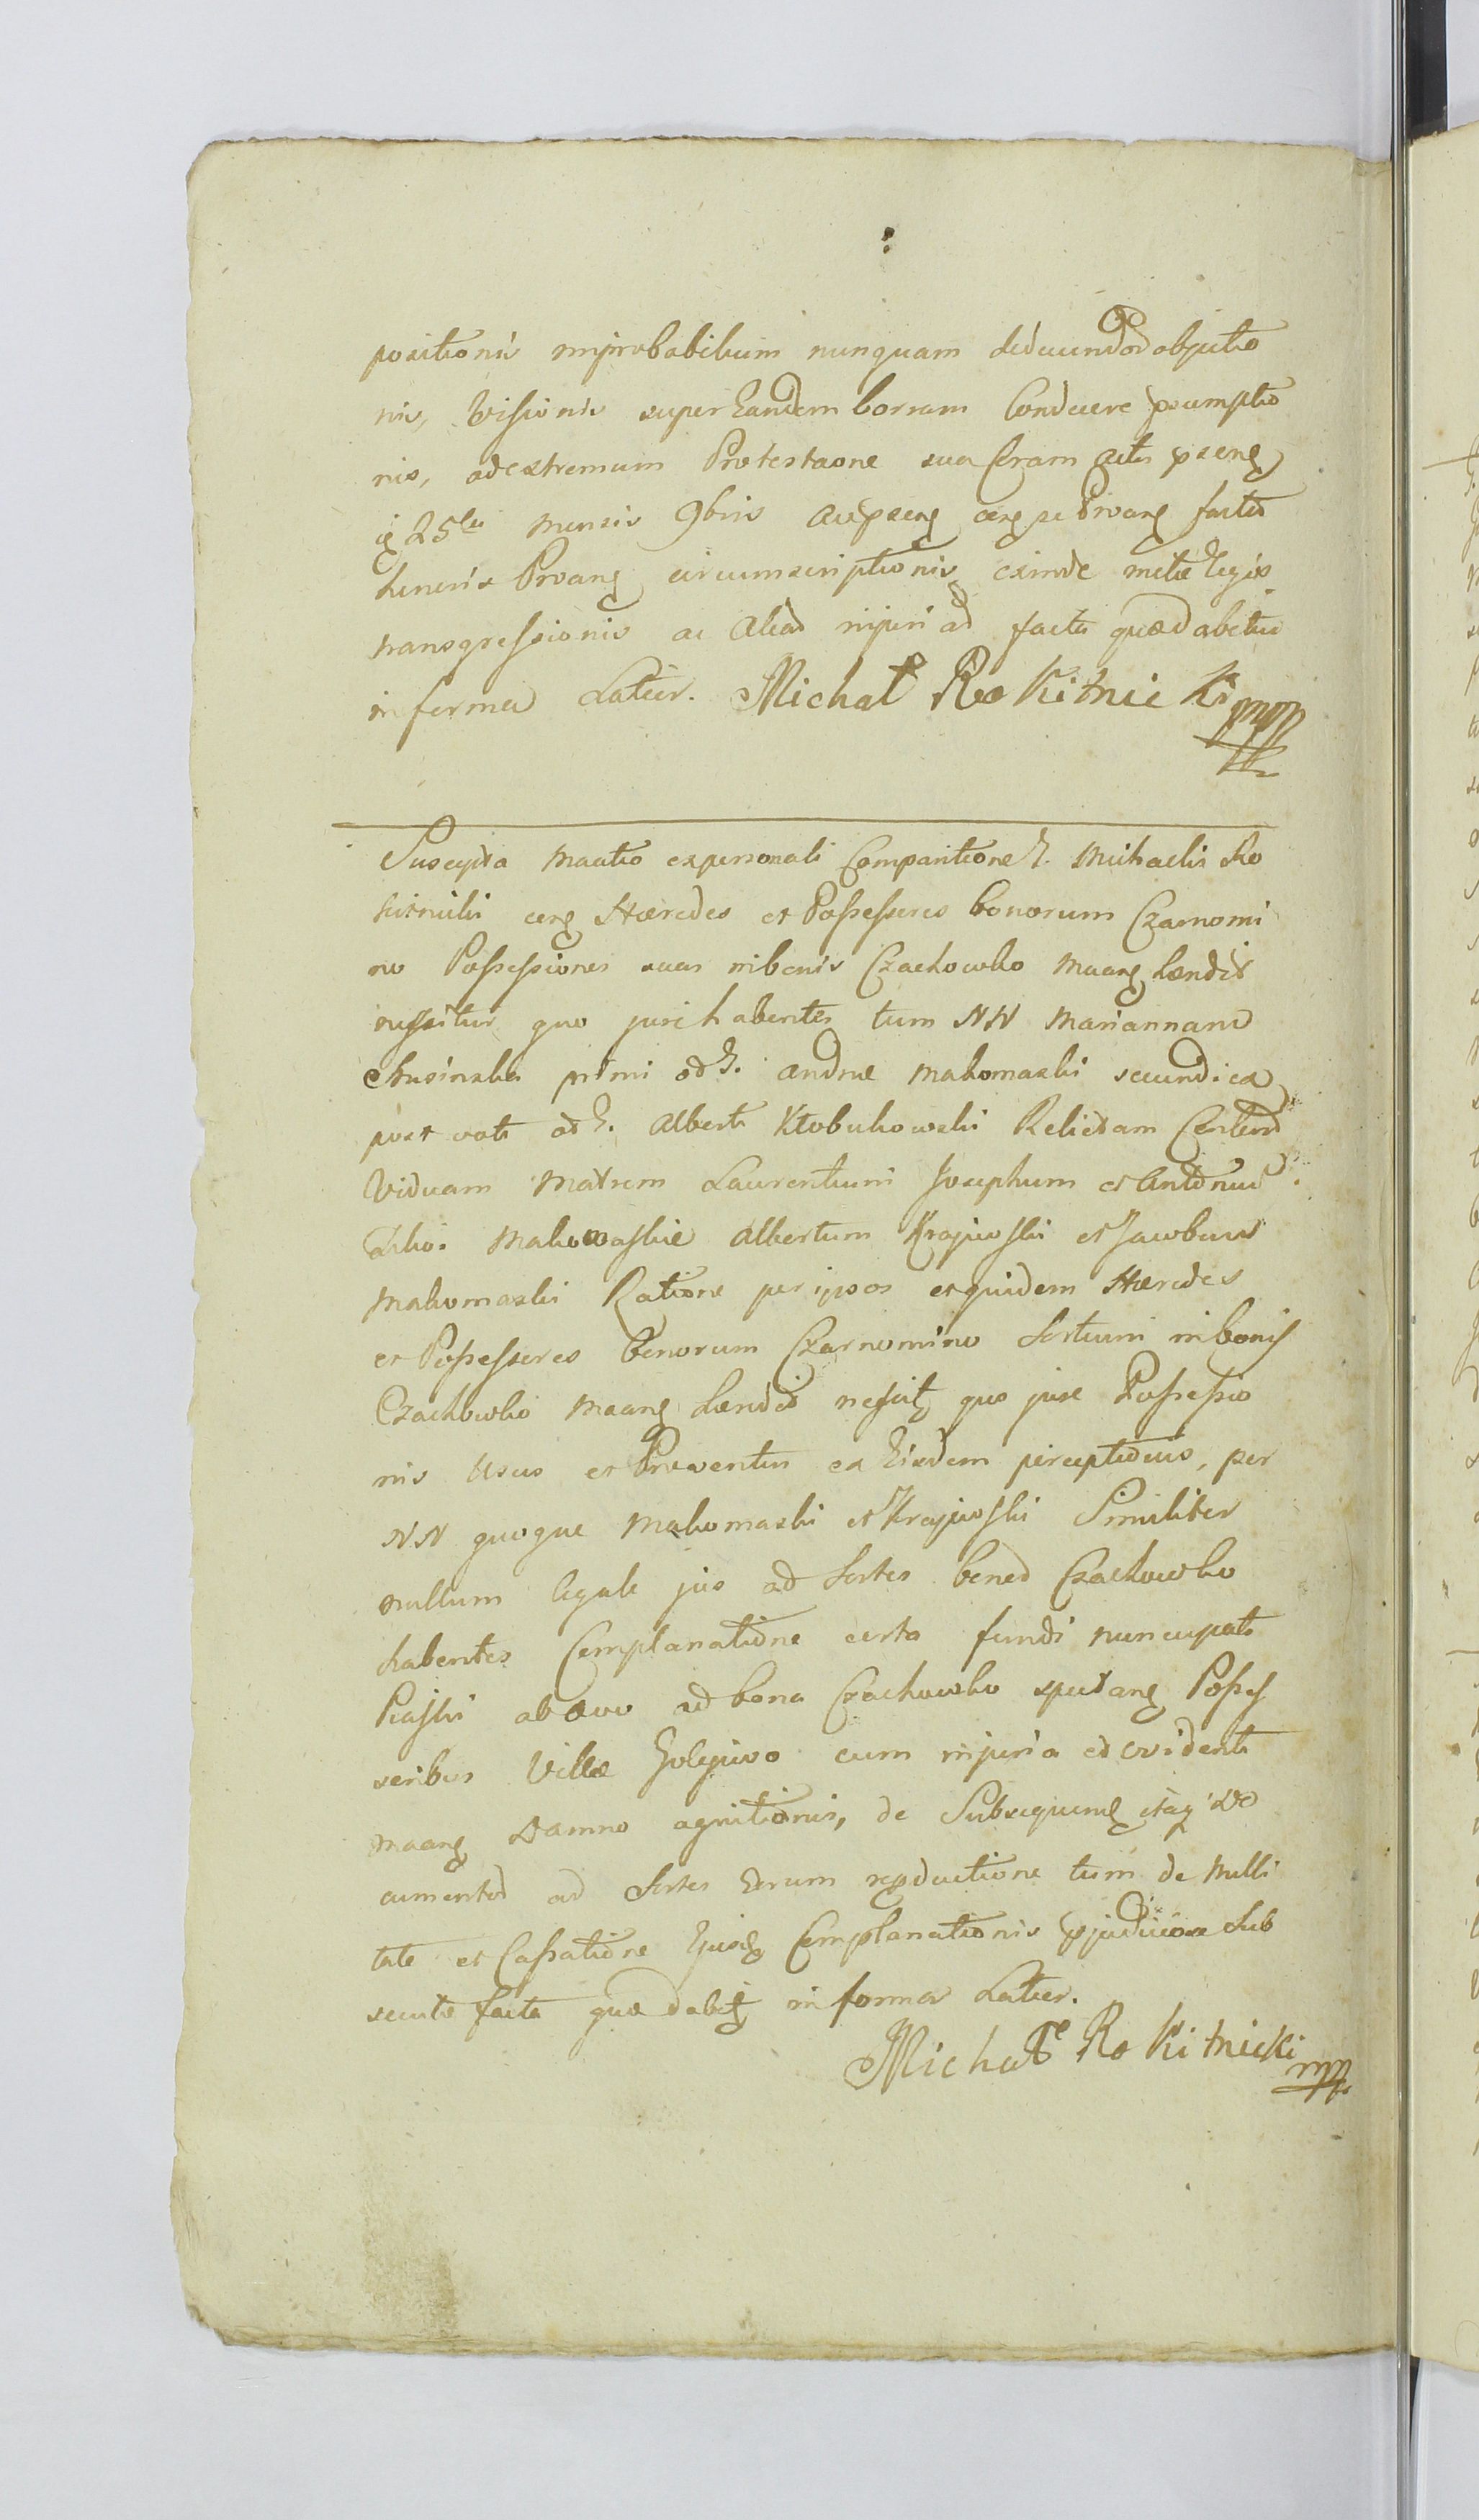 positionis improbabilium nunquam deducendor objectio
nis, Visionis super Eandem borram Conducere psumptio
nis, ad extremum Protestaone sua Coram actis psenq
q 25ta mensis 9bris ao pseng cerg se Proang facta
honoris Proang circumscriptionis exinde metæ legis
transgressionis ac aliad injuriad facta quæ dabitur
in forma Latior. Michał Rokitnicki mpp
Suscepta Maatio ex personali Comparitione G. Michaelis Ro
kitnicki cerg Hæredes et Possessores bonorum Czarnomi
no Possessiones suas in bonis Czachowko maang hændis
nescitur quo jure habentes tum NN Mariannam
Chusinska primi ad G. Andreæ Makomaski secundi ea
post voti ad G. Alberti Kłobukowski Relictam Consted
Viduam Matrem Laurentium Josephum et Antonium
Filios Makomaskie Albertum Krajewski et Jacobum
Makomaski Ratione per ipsos et quidem Hæredes
et Possessores bonorum Czarnomino Sortium in bonis
Czachowko maang hændis nescitq quo jure Possessio
nis Usus et Proventus ex Eisdem perceptionis, per
NN quoque Makomaski et Krajewski Similiter
nullum legale jus ad Sortes bonod Czachowko
habentes Complanatione certa fundi nuncupati
Piaski ab ævo ad bona Czachowko spectang Posses
soribus Villæ Golejewo cum injuria et evidenti
maang Damno agnitionis, de Subsequenq itaq Do
cumentod ad Sortes Earum reproductione tum de Nulli
tate et Cassatione Ejusq Complanationis pjudiciose Sub
secuto facta quæ dabitq in forma Latior.
Michał Rokitnicki mpp